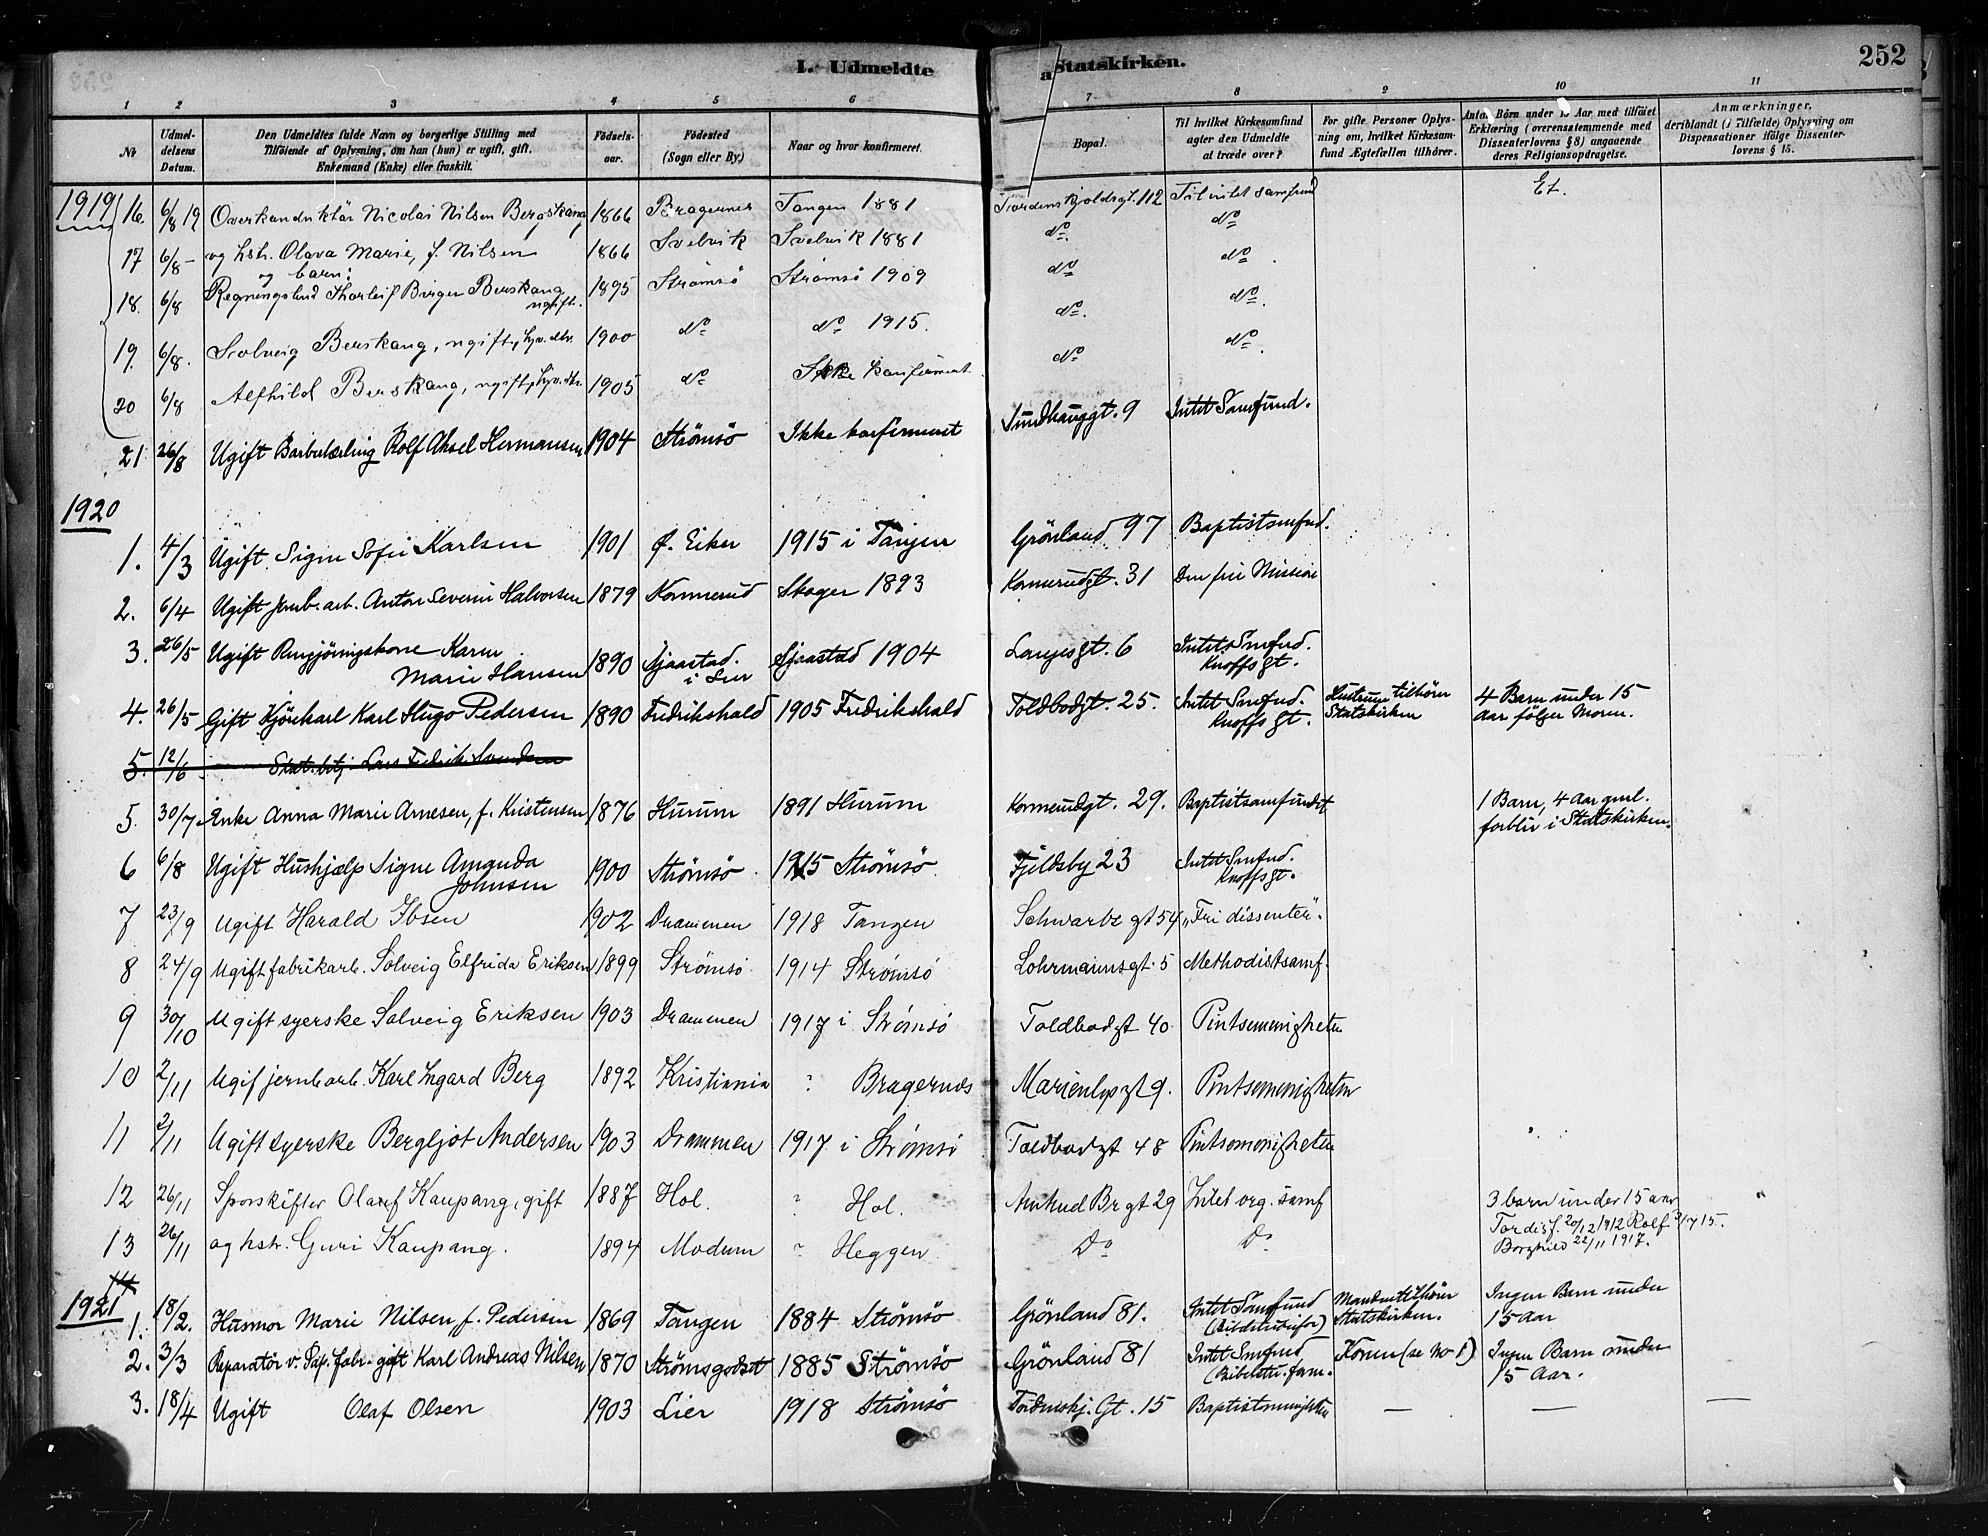 I. Udmeldte af Statskirken.
252
1 2 3 4 5 6 7 8 9 10 11
No
Udmeldelsens Datum.
Den Udmeldtes fulde Navn og borgerlige Stilling med
Tilföiende af Oplysning, om han (hun) er ugift, gift,
Enkemand (Enke) eller fraskilt.
Födselsaar.
Födested
(Sogn eller By.)
Naar og hvor konfirmeret.
Bopæl.
Til hvilket Kirkesamfund
agter den Udmeldte
at træde over?
For gifte Personer Oplysning om, hvilket Kirkesamfund Ægtefællen tilhörer.
Antal Börn under 15 Aar med tilföiet
Erklæring (overensstemmende med
Dissenterlovens § 8) angaaende
deres Religionsopdragelse.
Anmærkninger,
deriblandt (i Tilfælde) Oplysning om
Dispensationer ifölge Dissenterlovens § 15.
1919 16. 6/8 19 Overkonduktör Nicolai Nilsen Bergskang 1866 Bragernes Tangen 1881 Tordenskjoldsgt. 112 Til intet samfund Et.
17 6/8 – og hstr. Olava Marie, f. Nilsen 1866 Svelvik Svelvik 1881 do. do
og barn:
18. 6/8 Regningsbud Thorleif Birger Berskang ugift. 1895 Strømsö Strømsö 1909 do do.
19. 6/8. Solveig Berskang, ugift, hjv. dtr. 1900 do do 1915. do. do.
20 6/8 Alfhild Berskang, ugift, hjv. dtr. 1905 do Ikke konfirmert. do do.
21 26/8 Ugift Barberlærling Rolf Aksel Hermansen 1904 Strömsö Ikke konfirmeret Sundhauggt. 9 Intet Samfund.
1920
1. 4/3 Ugift Signe Sofie Karlsen 1901 Ø. Eiker 1915 i Tangen Grönland 97 Baptistsmfnd.
2. 6/4 Ugift Jernb. arb. Anton Severin Halvorsen 1879 Konnerud Skoger 1893 Konnerudgt. 31 Den frie Mission
3. 26/5 Ugift Rengjöringskone Karen
Marie Hansen 1890 Sjaastad.
i Lier Sjaastad 1904 Langesgt. 6 Intet Smfnd.
Knoffs gt.
4. 26/5 Gift Kjörekarl Karl Hugo Pedersen 1890 Fredrikshald 1905 Fredrikshald Toldbodgt. 25. Intet Smfnd.
Knoffs gt. Hustruen tilhörer
Statskirken 4 Barn under 15
Aar fölger Moren.
5. 12/6 Stat. betj. Lars Fredrik
5. 30/7 Enke Anna Marie Arnesen, f. Kristensen 1876 Hurum 1891 Hurum Konnerudgt. 29. Baptistsamfundet 1 Barn, 4 Aar gml.
forblir i Statskirken.
6 6/8 Ugift Hushjælp Signe Amanda
Johnsen 1900 Strömsö 1915 Strömsö. Fjeldsby 23 Intet Smfnd.
Knoffsgt.
7 23/9 Ugift Harald Ibsen 1902 Drammen 1918 Tangen Schwartz gt 54 „Fri dissenter".
8 24/9 Ugift fabrikarb. Solveig Elfrida Eriksen 1899 Strömsö 1914 Strömsö Lohrmannsgt. 5 Methodistsamf.
9 30/10 Ugift syerske Solveig Eriksen 1903 Drammen 1917 i Strömsö Toldbodgt 40 Pintsemenigheten
10 2/11 Ugif jernb arb. Karl Ingard Berg 1892 Kristiania ? Bragernes Marienlys gt 9. Pintsemenigheten
11 2/11 Ugift syerske Bergljot Andersen 1903 Drammen 1917 i Strömsö Toldbodgt 48 Pintsemenigheten
12 26/11 Sporskifter Olaf Kaupang, gift 1887 Hol. ? Hol. Br gt 29 Intet org. samf 3 barn under 15 aar
Tordis f. 20/12 1912 Rolf 3/7 15.
Borghild 22/11 1917.
13 26/11 og hstr. Guri Kaupang. 1894 Modum ? Heggen Do Do
14
1921
1. 18/2. Husmor Marie Nilsen, f. Pedersen 1869 Tangen 1884 Strömsö Grönland 81. Intet Samfund Manden tilhörer
Statskirken. Ingen Barn under
15 Aar
2. 3/3 Reparatör v. Pap. fabr. gift Karl Andreas Nilsen 1870 Strömsgodset 1885 Strömsö Grönland 81 Intet Smfnd Konen (se No 1) Ingen Barn under
15 Aar.
3. 18/4 Ugift Olaf Olsen 1903 Lier 1918 Strömsö Tordenskj. Gt. 15 Baptistmenigheten — — —